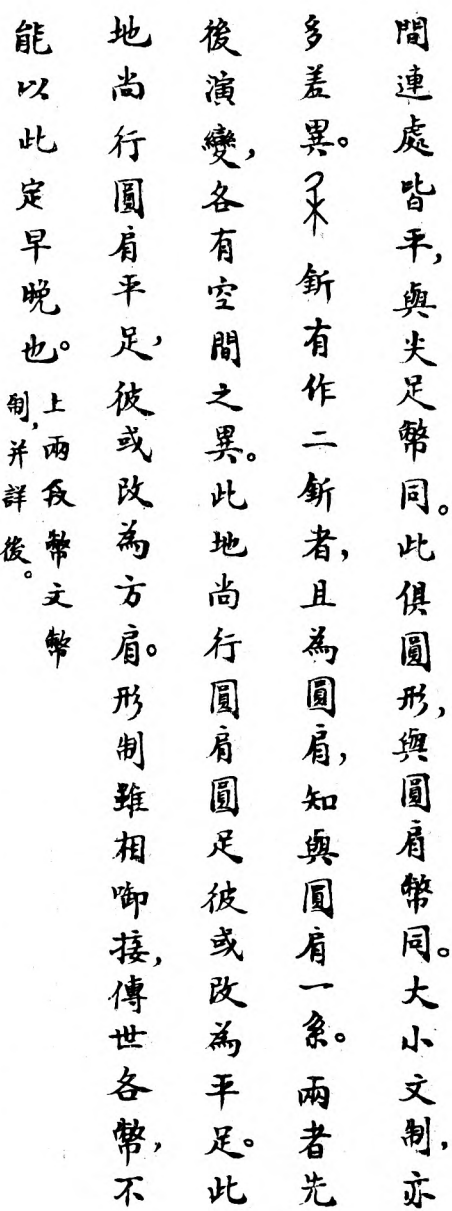 間連處皆平，與尖足幣同。此俱圓形，與圓肩幣同。大小文制，亦
多差異。釿有作二釿者，且為圓肩，知與圓肩一系。兩者先
後演變，各有空間之異。此地尚行圓肩圓足彼或改為平足。此
地尚行圓肩平足，彼或改為方肩。形制雖相啣接，傳世各幣，不
能以此定早晚也。上兩段幣文幣
制，并詳後。